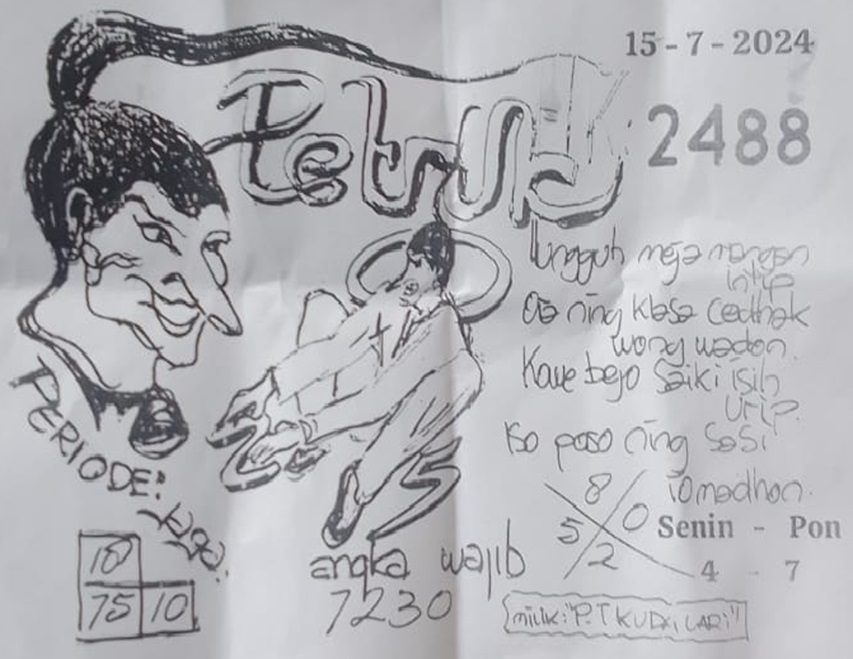 15 - 7 - 2024
Petruk
2488
lungguh meja mangan
intip
Ojo ning klasa cedhak
wong wadon.
Kowe bejo saiki isih
urip.
iso poso ning sasi
romadhon.
PERIODE:
8
5 0
2
Senin - Pon
4 - 7
10
75 10
angka wajib
7230
milik: "P.T KUDA LARI"